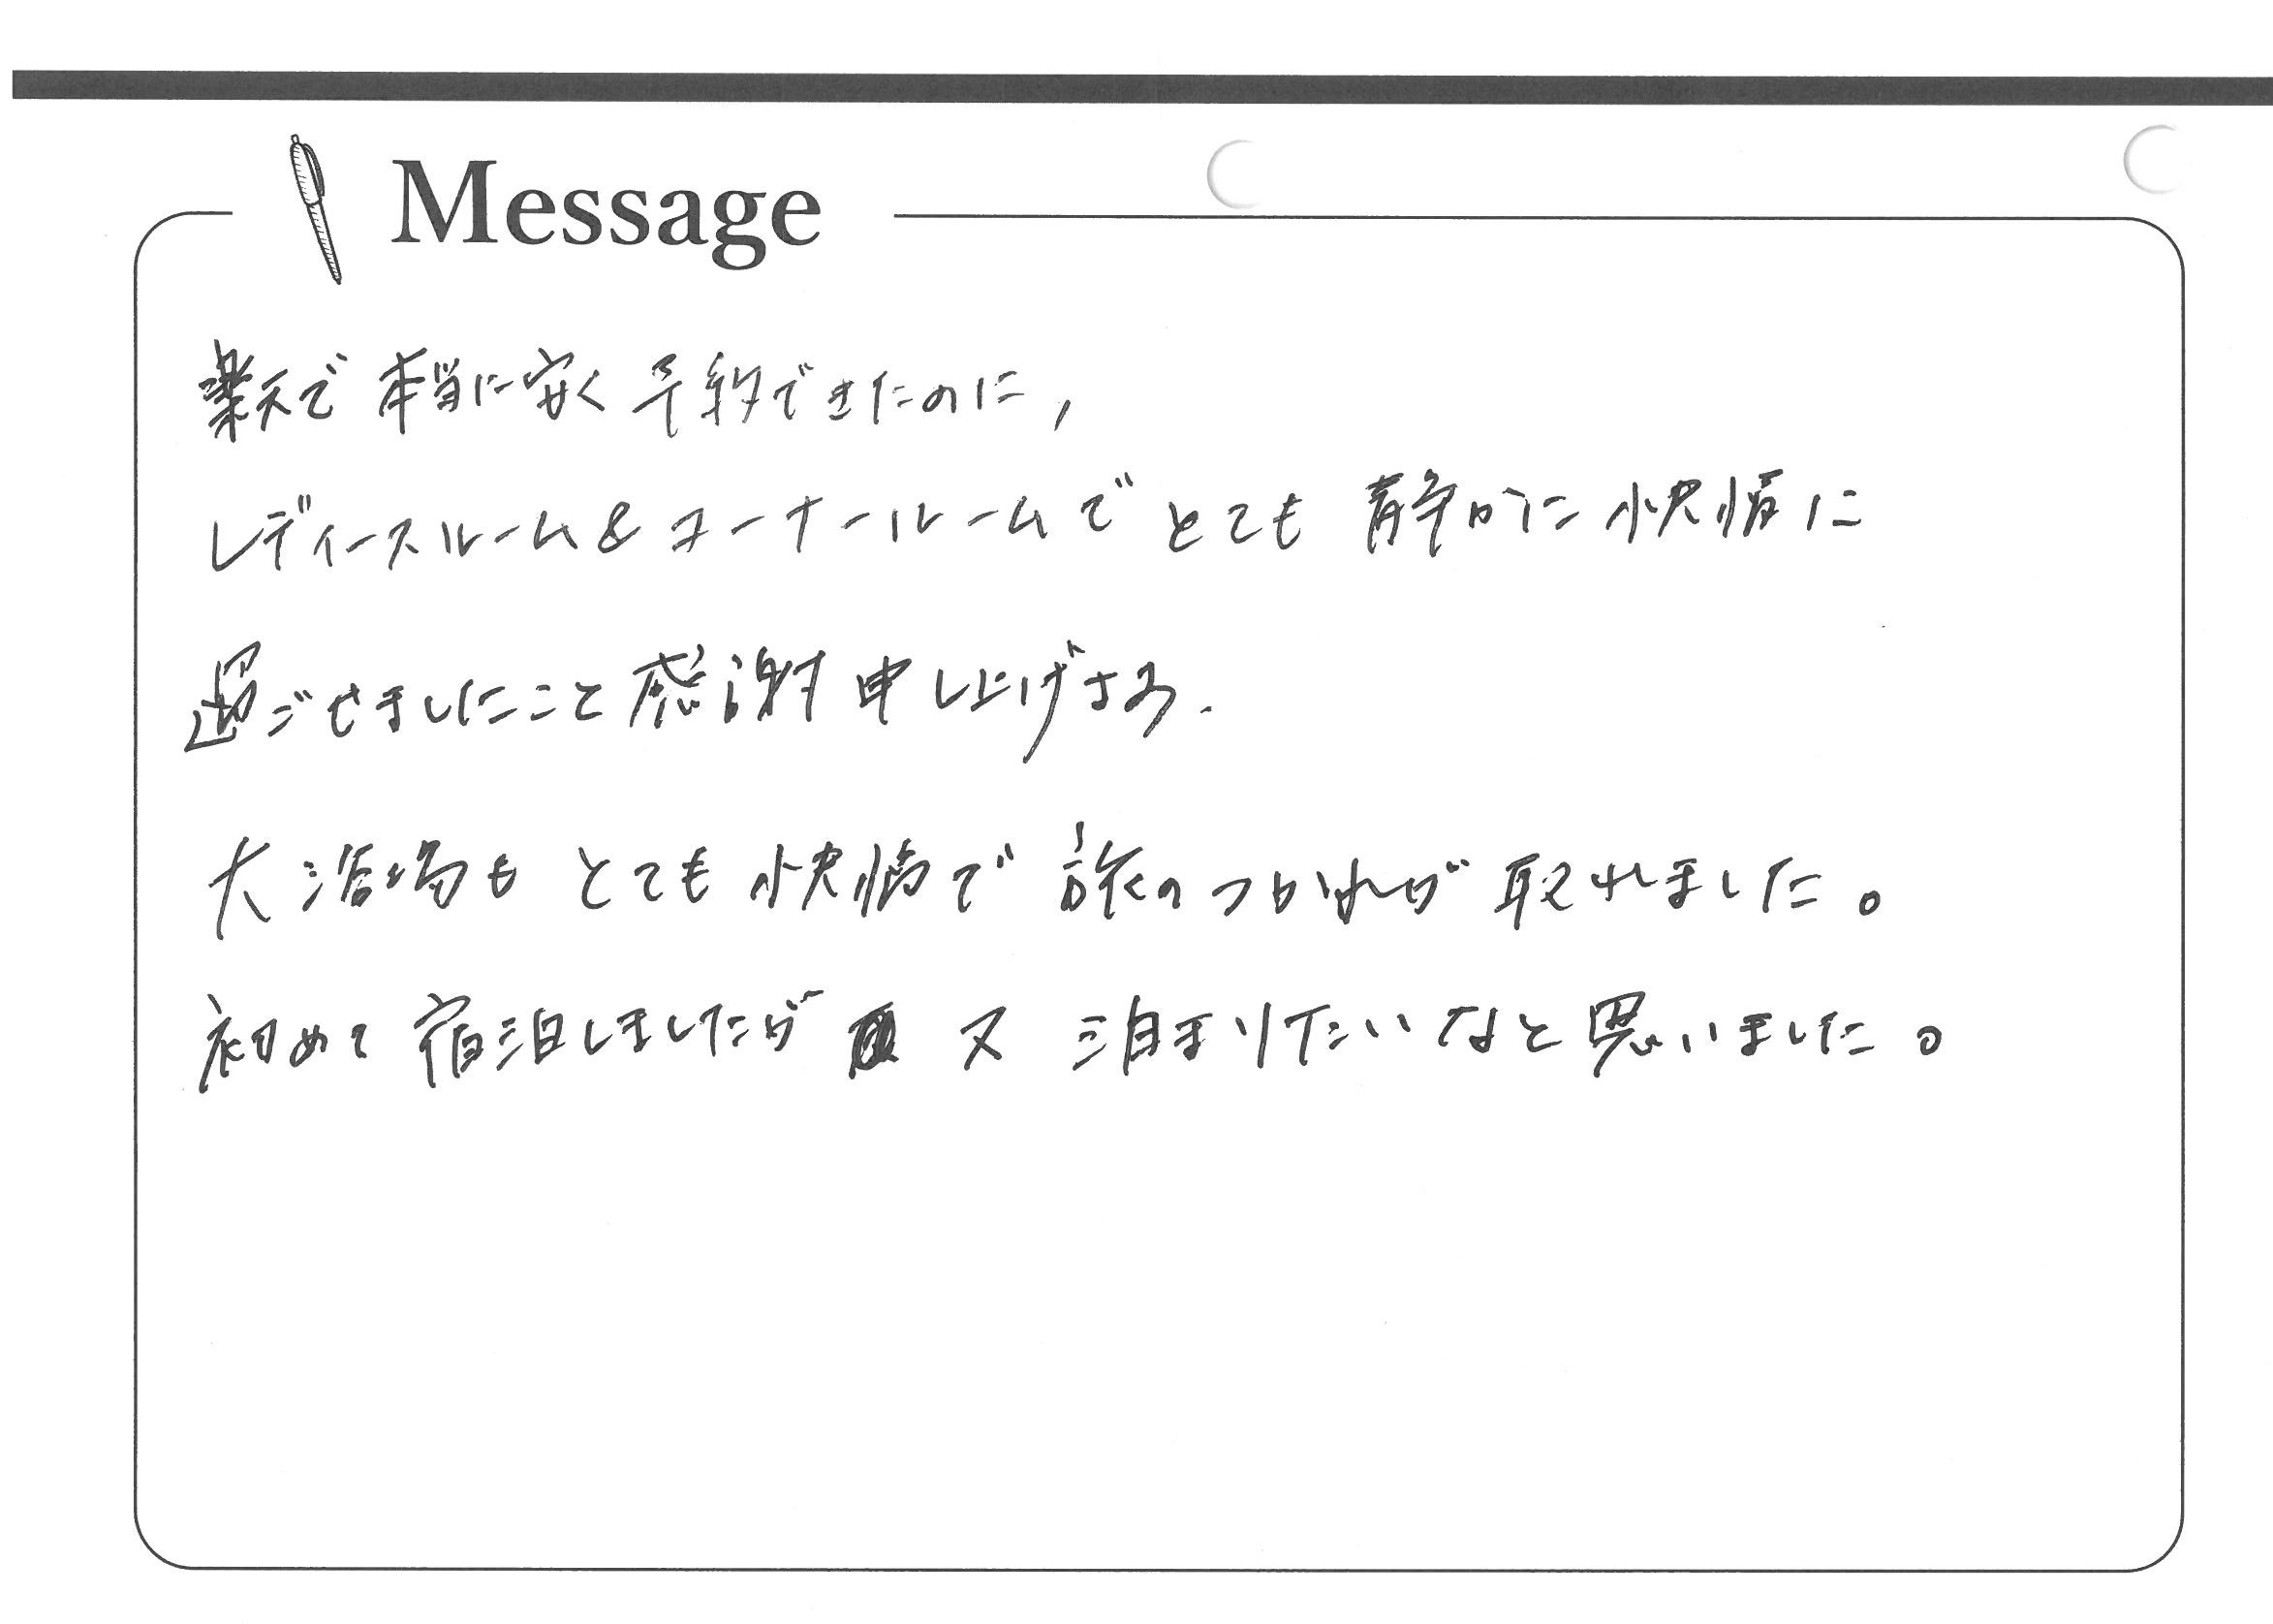 Message
楽天で 本当に安く 予約できたのに,
レディースルーム& コーナールームで とても 静かに 快適に
過ごせましたこと 感謝 申し上げます.
大浴場も とても 快適で 旅の つかれが 取れました。
初めて 宿泊しましたが 又 泊まりたいなと思いました。